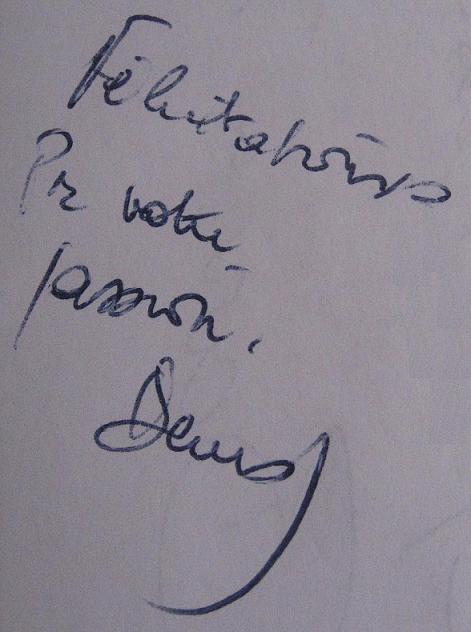 Félicitations
Pr votre
passion.
Denis